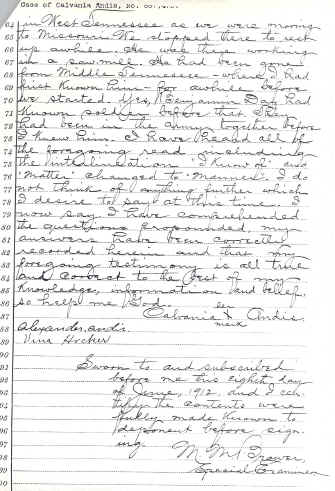 Case of Calvania Andis, No.
62 in West Tennessee as we were moving
65 to Missouri. We stopped there to rest
66 up awhile. He was then working
67 in a sawmill. He had been gone
68 from Middle Tennessee - where I had
69 first known him - for awhile before
70 we started. Yes, Benjamin Day had
71 known soldier before that. They
72 had been in the army together before
73 I knew him. I have heard all of
74 the foregoing read including
75 the interlineation "I know of" and
76 "Matter" changed to "Manner". I do
77 not think of anything further which
78 I desire to say at this time. I
79 now say I have comprehended
80 the questions propounded, my
81 answers have been correctly
82 recorded herein and that my
83 foregoing testimony is all true
84 and correct to the best of my
85 knowledge, information and belief,
86 so help me God. her
87 Calvania x Andis.
88 Alexander Andis mark
89 Vina Archer
90
Sworn to and subscribed
before me this eighth day
of June, 1912, and I cer-
tify the contents were
fully made known to
deponent before sign-
97 ing.
98 M. M.
99 Special Examiner